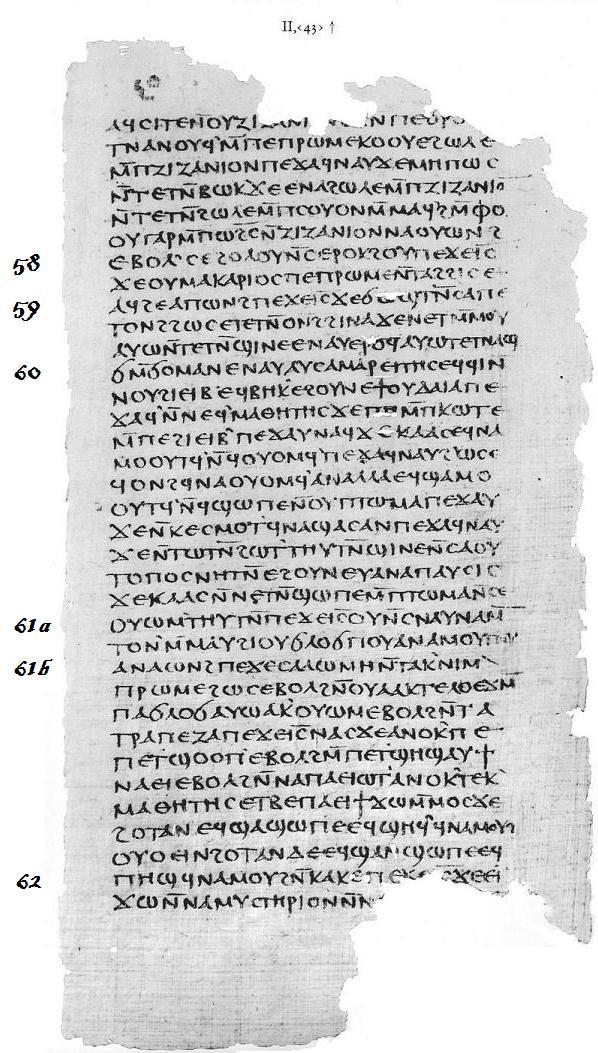 II,‹43› ↑
ⲁϥⲥⲓⲧⲉⲛ̄ⲟⲩⲍⲓⲍⲁⲛⲓ
ⲧⲛⲁⲛⲟⲩϥ`ⲙ̄ⲡⲉⲡⲣⲱⲙⲉⲕⲟⲟⲩⲉϩⲱⲗⲉ
ⲙ̄ⲡⲍⲓⲍⲁⲛⲓⲟⲛⲡⲉϫⲁϥⲛⲁⲩϫⲉⲙⲏⲡⲱⲥ
ⲛ̄ⲧⲉⲧⲛ̄ⲃⲱⲕ`ϫⲉⲉⲛⲁϩⲱⲗⲉⲙ̄ⲡⲍⲓⲍⲁⲛⲓⲟ
ⲛ̄ⲧⲉⲧⲛ̄ϩⲱⲗⲉⲙ̄ⲡⲥⲟⲩⲟⲛⲙ̄ⲙⲁϥ`ϩⲙ̄ⲫⲟ
ⲟⲩⲅⲁⲣⲙ̄ⲡⲱϩⲥⲛ̄ⲍⲓⲍⲁⲛⲓⲟⲛⲛⲁⲟⲩⲱⲛϩ
58 ⲉⲃⲟⲗ`ⲥⲉϩⲟⲗⲟⲩⲛ̄ⲥⲉⲣⲟⲕϩⲟⲩⲡⲉϫⲉⲓ̄ⲥ̄
ϫⲉⲟⲩⲙⲁⲕⲁⲣⲓⲟⲥⲡⲉⲡⲣⲱⲙⲉⲛ̄ⲧⲁϩϩⲓⲥⲉ
59 ⲁϥϩⲉⲁⲡⲱⲛϩⲡⲉϫⲉⲓ̄ⲥ̄ϫⲉϭⲱϣⲧⲛ̄ⲥⲁⲡⲉ
ⲧⲟⲛϩϩⲱⲥⲉⲧⲉⲧⲛ̄ⲟⲛϩϩⲓⲛⲁϫⲉⲛⲉⲧⲙ̄ⲙⲟⲩ
ⲁⲩⲱⲛ̄ⲧⲉⲧⲛ̄ϣⲓⲛⲉⲉⲛⲁⲩⲉⲣⲟϥⲁⲩⲱⲧⲉⲧⲛⲁϣ
60 ϭⲙ̄ϭⲟⲙⲁⲛⲉⲛⲁⲩⲁⲩⲥⲁⲙⲁⲣⲉⲓⲧⲏⲥⲉϥϥⲓⲛ
ⲛⲟⲩϩⲓⲉⲓⲃ`ⲉϥⲃⲏⲕ`ⲉϩⲟⲩⲛⲉϯⲟⲩⲇⲁⲓⲁⲡⲉ
ϫⲁϥ`ⲛ̄ⲛⲉϥ`ⲙⲁⲑⲏⲧⲏⲥϫⲉⲡⲏⲙ̄ⲡⲕⲱⲧⲉ
ⲙ̄ⲡⲉϩⲓⲉⲓⲃ`ⲡⲉϫⲁⲩⲛⲁϥϫⲉⲕⲁⲁⲥⲉϥⲛⲁ
ⲙⲟⲟⲩⲧϥ`ⲛ̄ϥⲟⲩⲟⲙϥ`ⲡⲉϫⲁϥⲛⲁⲩϩⲱⲥⲉ
ϥⲟⲛϩϥⲛⲁⲟⲩⲟⲙϥ`ⲁⲛⲁⲗⲗⲁⲉϥϣⲁⲙⲟ
ⲟⲩⲧϥ`ⲛ̄ϥϣⲱⲡⲉⲛ̄ⲟⲩⲡⲧⲱⲙⲁⲡⲉϫⲁⲩ
ϫⲉⲛ̄ⲕⲉⲥⲙⲟⲧ`ϥⲛⲁϣⲁⲥⲁⲛⲡⲉϫⲁϥⲛⲁⲩ
ϫⲉⲛ̄ⲧⲱⲧⲛ̄ϩⲱⲧ`ⲧⲏⲩⲧⲛ̄ϣⲓⲛⲉⲛ̄ⲥⲁⲟⲩ
ⲧⲟⲡⲟⲥⲛⲏⲧⲛ̄ⲉϩⲟⲩⲛⲉⲩⲁⲛⲁⲡⲁⲩⲥⲓⲥ
ϫⲉⲕⲁⲁⲥⲛ̄ⲛⲉⲧⲛ̄ϣⲱⲡⲉⲙ̄ⲡⲧⲱⲙⲁⲛ̄ⲥⲉ
61a ⲟⲩⲱⲙ`ⲧⲏⲩⲧⲛ̄ⲡⲉϫⲉⲓ̄ⲥ̄ⲟⲩⲛ̄ⲥⲛⲁⲩⲛⲁⲙ̄
ⲧⲟⲛ`ⲙ̄ⲙⲁⲩϩⲓⲟⲩϭⲗⲟϭⲡⲟⲩⲁⲛⲁⲙⲟⲩⲡⲟⲩ
61b ⲁⲛⲁⲱⲛϩⲡⲉϫⲉⲥⲁⲗⲱⲙⲏⲛ̄ⲧⲁⲕ`ⲛⲓⲙ`
ⲡⲣⲱⲙⲉϩⲱⲥⲉⲃⲟⲗϩⲛ̄ⲟⲩⲁⲁⲕⲧⲉⲗⲟⲉϫⲙ̄
ⲡⲁϭⲗⲟϭⲁⲩⲱⲁⲕ`ⲟⲩⲱⲙⲉⲃⲟⲗϩⲛ̄ⲧⲁ
ⲧⲣⲁⲡⲉⲍⲁⲡⲉϫⲉⲓ̄ⲥ̄ⲛⲁⲥϫⲉⲁⲛⲟⲕ`ⲡⲉ
ⲡⲉⲧϣⲟⲟⲡ`ⲉⲃⲟⲗϩⲙ̄ⲡⲉⲧ`ϣⲏϣⲁⲩϯ
ⲛⲁⲉⲓⲉⲃⲟⲗϩⲛ̄ⲛⲁⲡⲁⲉⲓⲱⲧ`ⲁⲛⲟⲕ`ⲧⲉⲕ`
ⲙⲁⲑⲏⲧⲏⲥⲉⲧⲃⲉⲡⲁⲉⲓϯϫⲱⲙ̄ⲙⲟⲥϫⲉ
ϩⲟⲧⲁⲛⲉϥϣⲁϣⲱⲡⲉⲉϥϣⲏϥ`ϥⲛⲁⲙⲟⲩϩ
ⲟⲩⲟⲉⲓⲛϩⲟⲧⲁⲛⲇⲉⲉϥϣⲁⲛϣⲱⲡⲉⲉϥ
62 ⲡⲏϣϥⲛⲁⲙⲟⲩϩⲛ̄ⲕⲁⲕⲉⲡⲉϫⲉⲓ̄ⲥ̄ϫⲉⲉⲓ
ϫⲱⲛ̄ⲛⲁⲙⲩⲥⲧⲏⲣⲓⲟⲛⲛ̄ⲛ